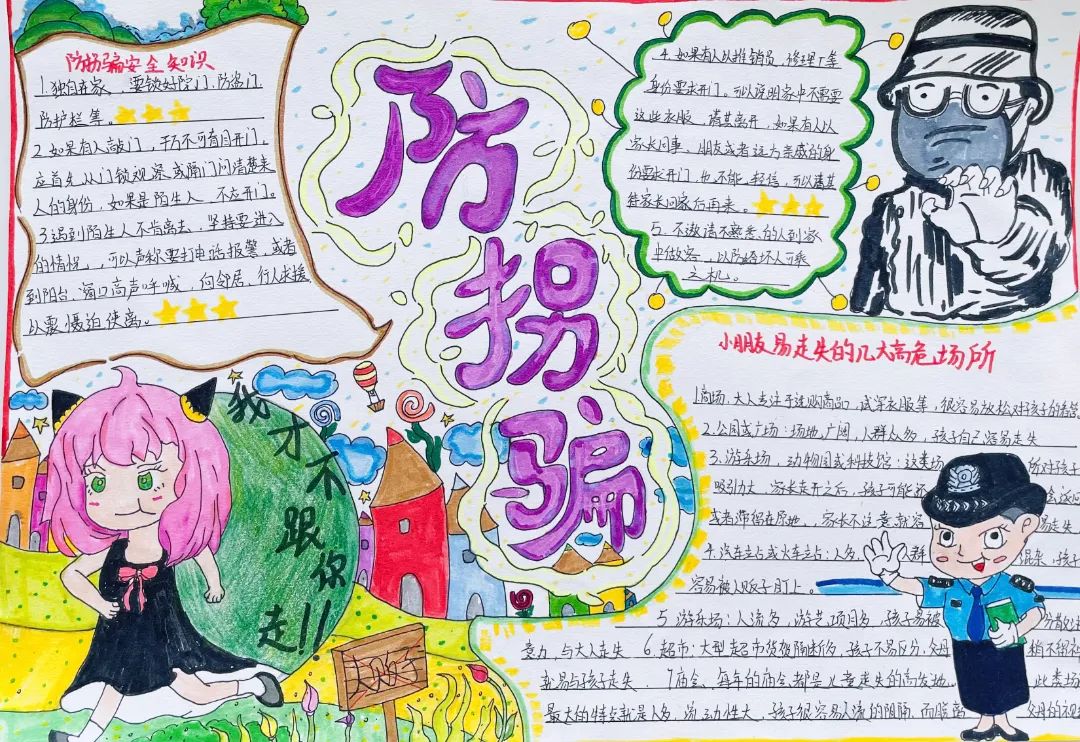 防拐骗
防拐骗安全知识
1.独自在家，要锁好院门、防盗门、
防护栏等。
2.如果有人敲门，千万不可盲目开门，
应首先从门镜观察或隔门问清楚来
人的身份，如果是陌生人，不应开门。
3.遇到陌生人不肯离去，坚持要进入
的情况，可以声称要打电话报警，或者
到阳台、窗口高声呼喊，向邻居、行人求援，
以震慑迫使离。
4.如果有人以推销员、修理工等
身份要求开门。可以说明家中不需要
这些衣服，请其离开，如果有人以
家长同事、朋友或者远方亲戚的身
份要求开门，也不能轻信，可以请其
待家长回家后再来。
5.不邀请不熟悉的人到家
中做客，以防给坏人可乘
之机。
我才不跟你走!!
小朋友易走失的几大高危场所
1.商场：大人专注于选购商品，试穿衣服等，很容易放松对孩子的看管
2.公园或广场：场地广阔，人群众多，孩子自己容易走失
3.游乐场，动物园或科技馆：这类场 所对孩子
吸引力大 家长走开之后，孩子可能还
或者滞留在原地， 家长不注意就容 易走失
4.汽车站或火车站：人多， 人群 混杂，孩子
容易被人贩子盯上。
5.游乐场：人流多，游艺项目多，孩子易被 分散注
意力，与大人走失 6.超市：大型超市货架隔断多，孩子不易区分，父母 稍不留神
就易与孩子走失. 7.庙会，每年的庙会都是儿童走失的高发地。 此类场
最大的特点就是人多，流动性大，孩子很容易人流的阻隔，而脱离 父母的视